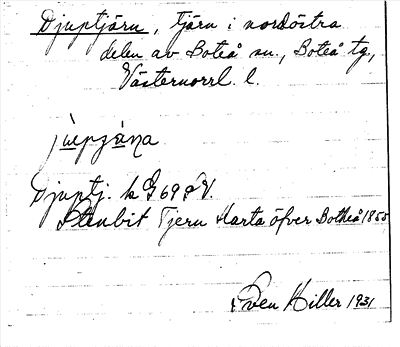 Djuptjärn, tjärn i nordöstra
delen av Boteå sn., Boteå tg,
Västernorrl. l.
Djuptj. k G 69 V.
Stenbit Tjern Karta öfver Botheå 1855
Sven Hiller 1931